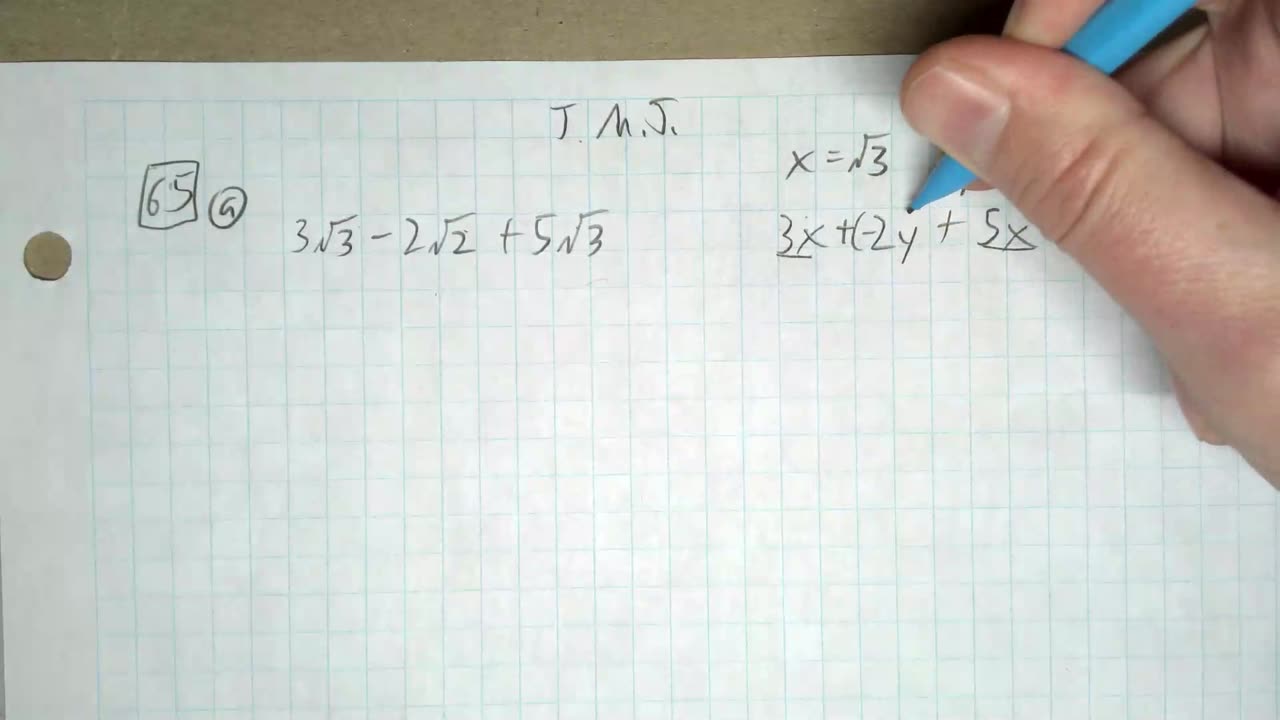 J.M.J.
x = √3
65 a 3√3 - 2√2 + 5√3
3x + (-2y + 5x